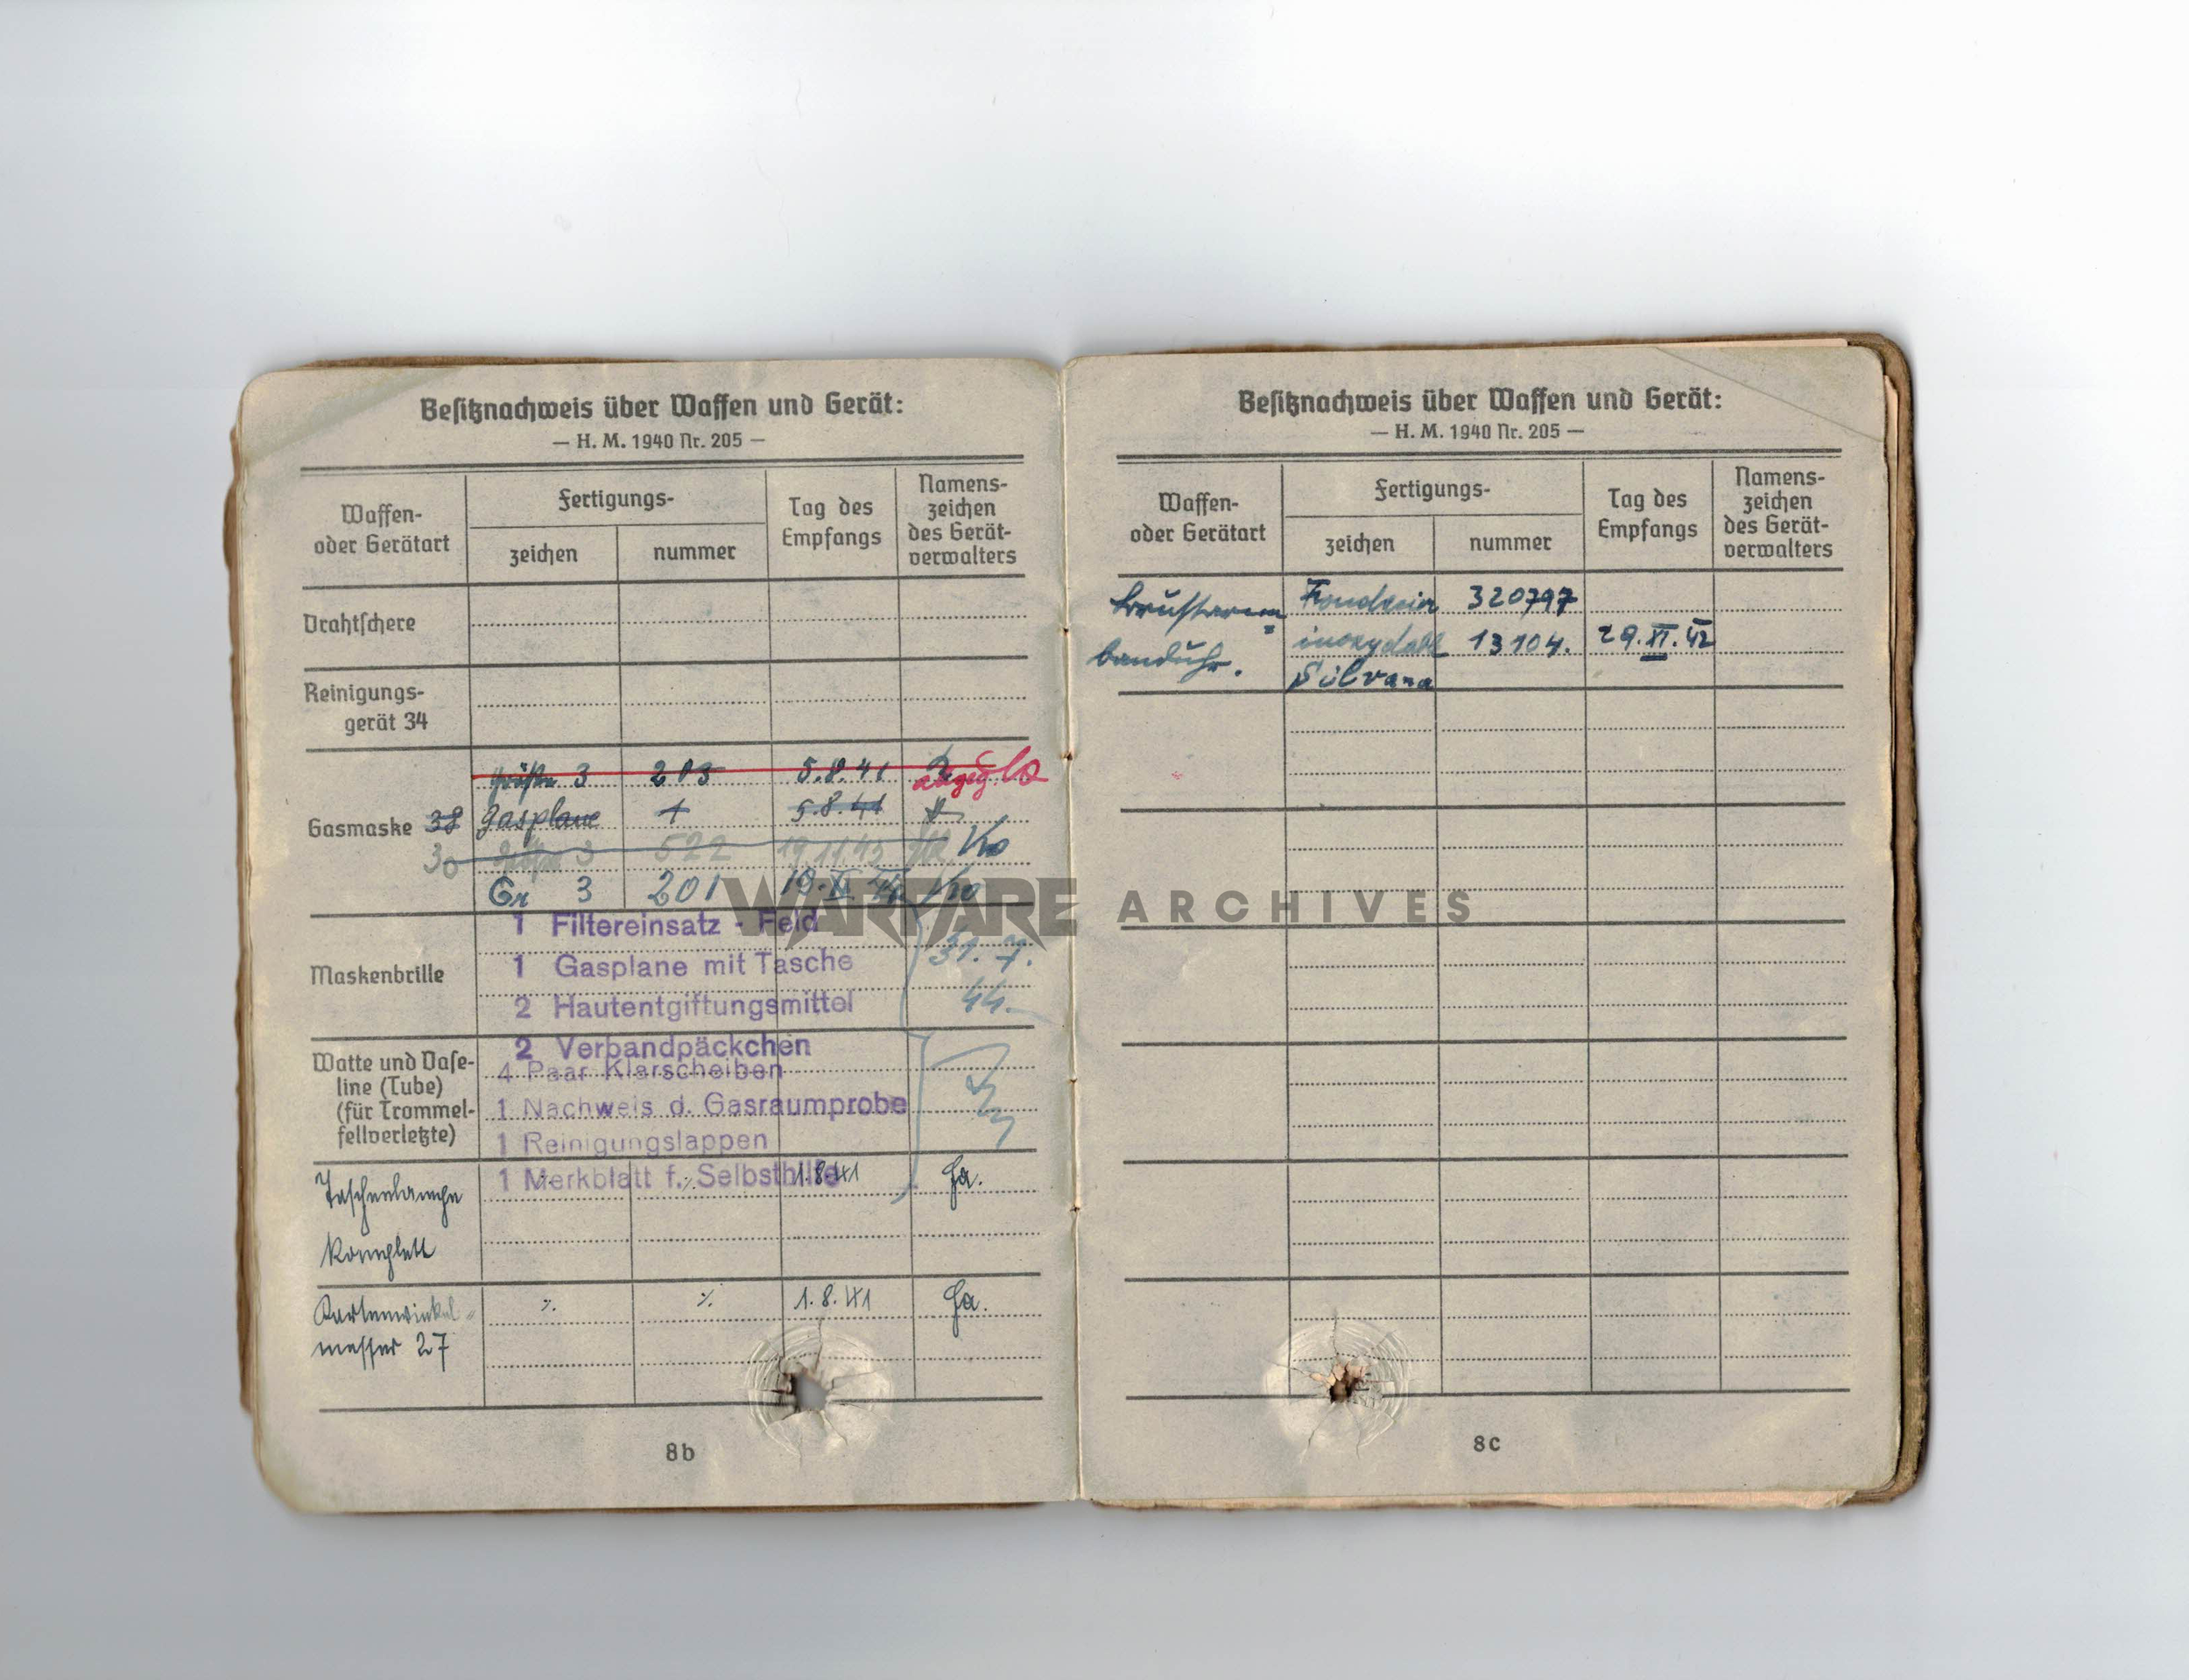 Besitznachweis über Waffen und Gerät:
— H. M. 1940 Nr. 205 —
Waffen-
oder Gerätart
Fertigungs-
zeichen
nummer
Tag des
Empfangs
Namens-
zeichen
des Gerät-
verwalters
Drahtschere
Reinigungs-
gerät 34
Gasmaske 38
30
Größe 3 203 5.8.41
abgeg.
Gasplane 1 5.8.41
Größe 3 522
Gr 3 201 19.XI.
Maskenbrille
1 Filtereinsatz - Feld
1 Gasplane mit Tasche
2 Hautentgiftungsmittel
31.7.
44.
Watte und Vase-
line (Tube)
(für Trommel-
fellverletzte)
2 Verbandpäckchen
4 Paar Klarscheiben
1 Nachweis d. Gasraumprobe
1 Reinigungslappen
1 Merkblatt f. Selbsthilfe
Taschenlampe 1.8.41 Ja.
Komplett
Kartenwinkel- ⁒ ⁒ 1.8.41 Ja.
messer 27
8b
Besitznachweis über Waffen und Gerät:
— H. M. 1940 Nr. 205 —
Waffen-
oder Gerätart
Fertigungs-
zeichen
nummer
Tag des
Empfangs
Namens-
zeichen
des Gerät-
verwalters
320797
banduhr. 13104. 29.XI.42
Silvana
8c
WARFARE ARCHIVES